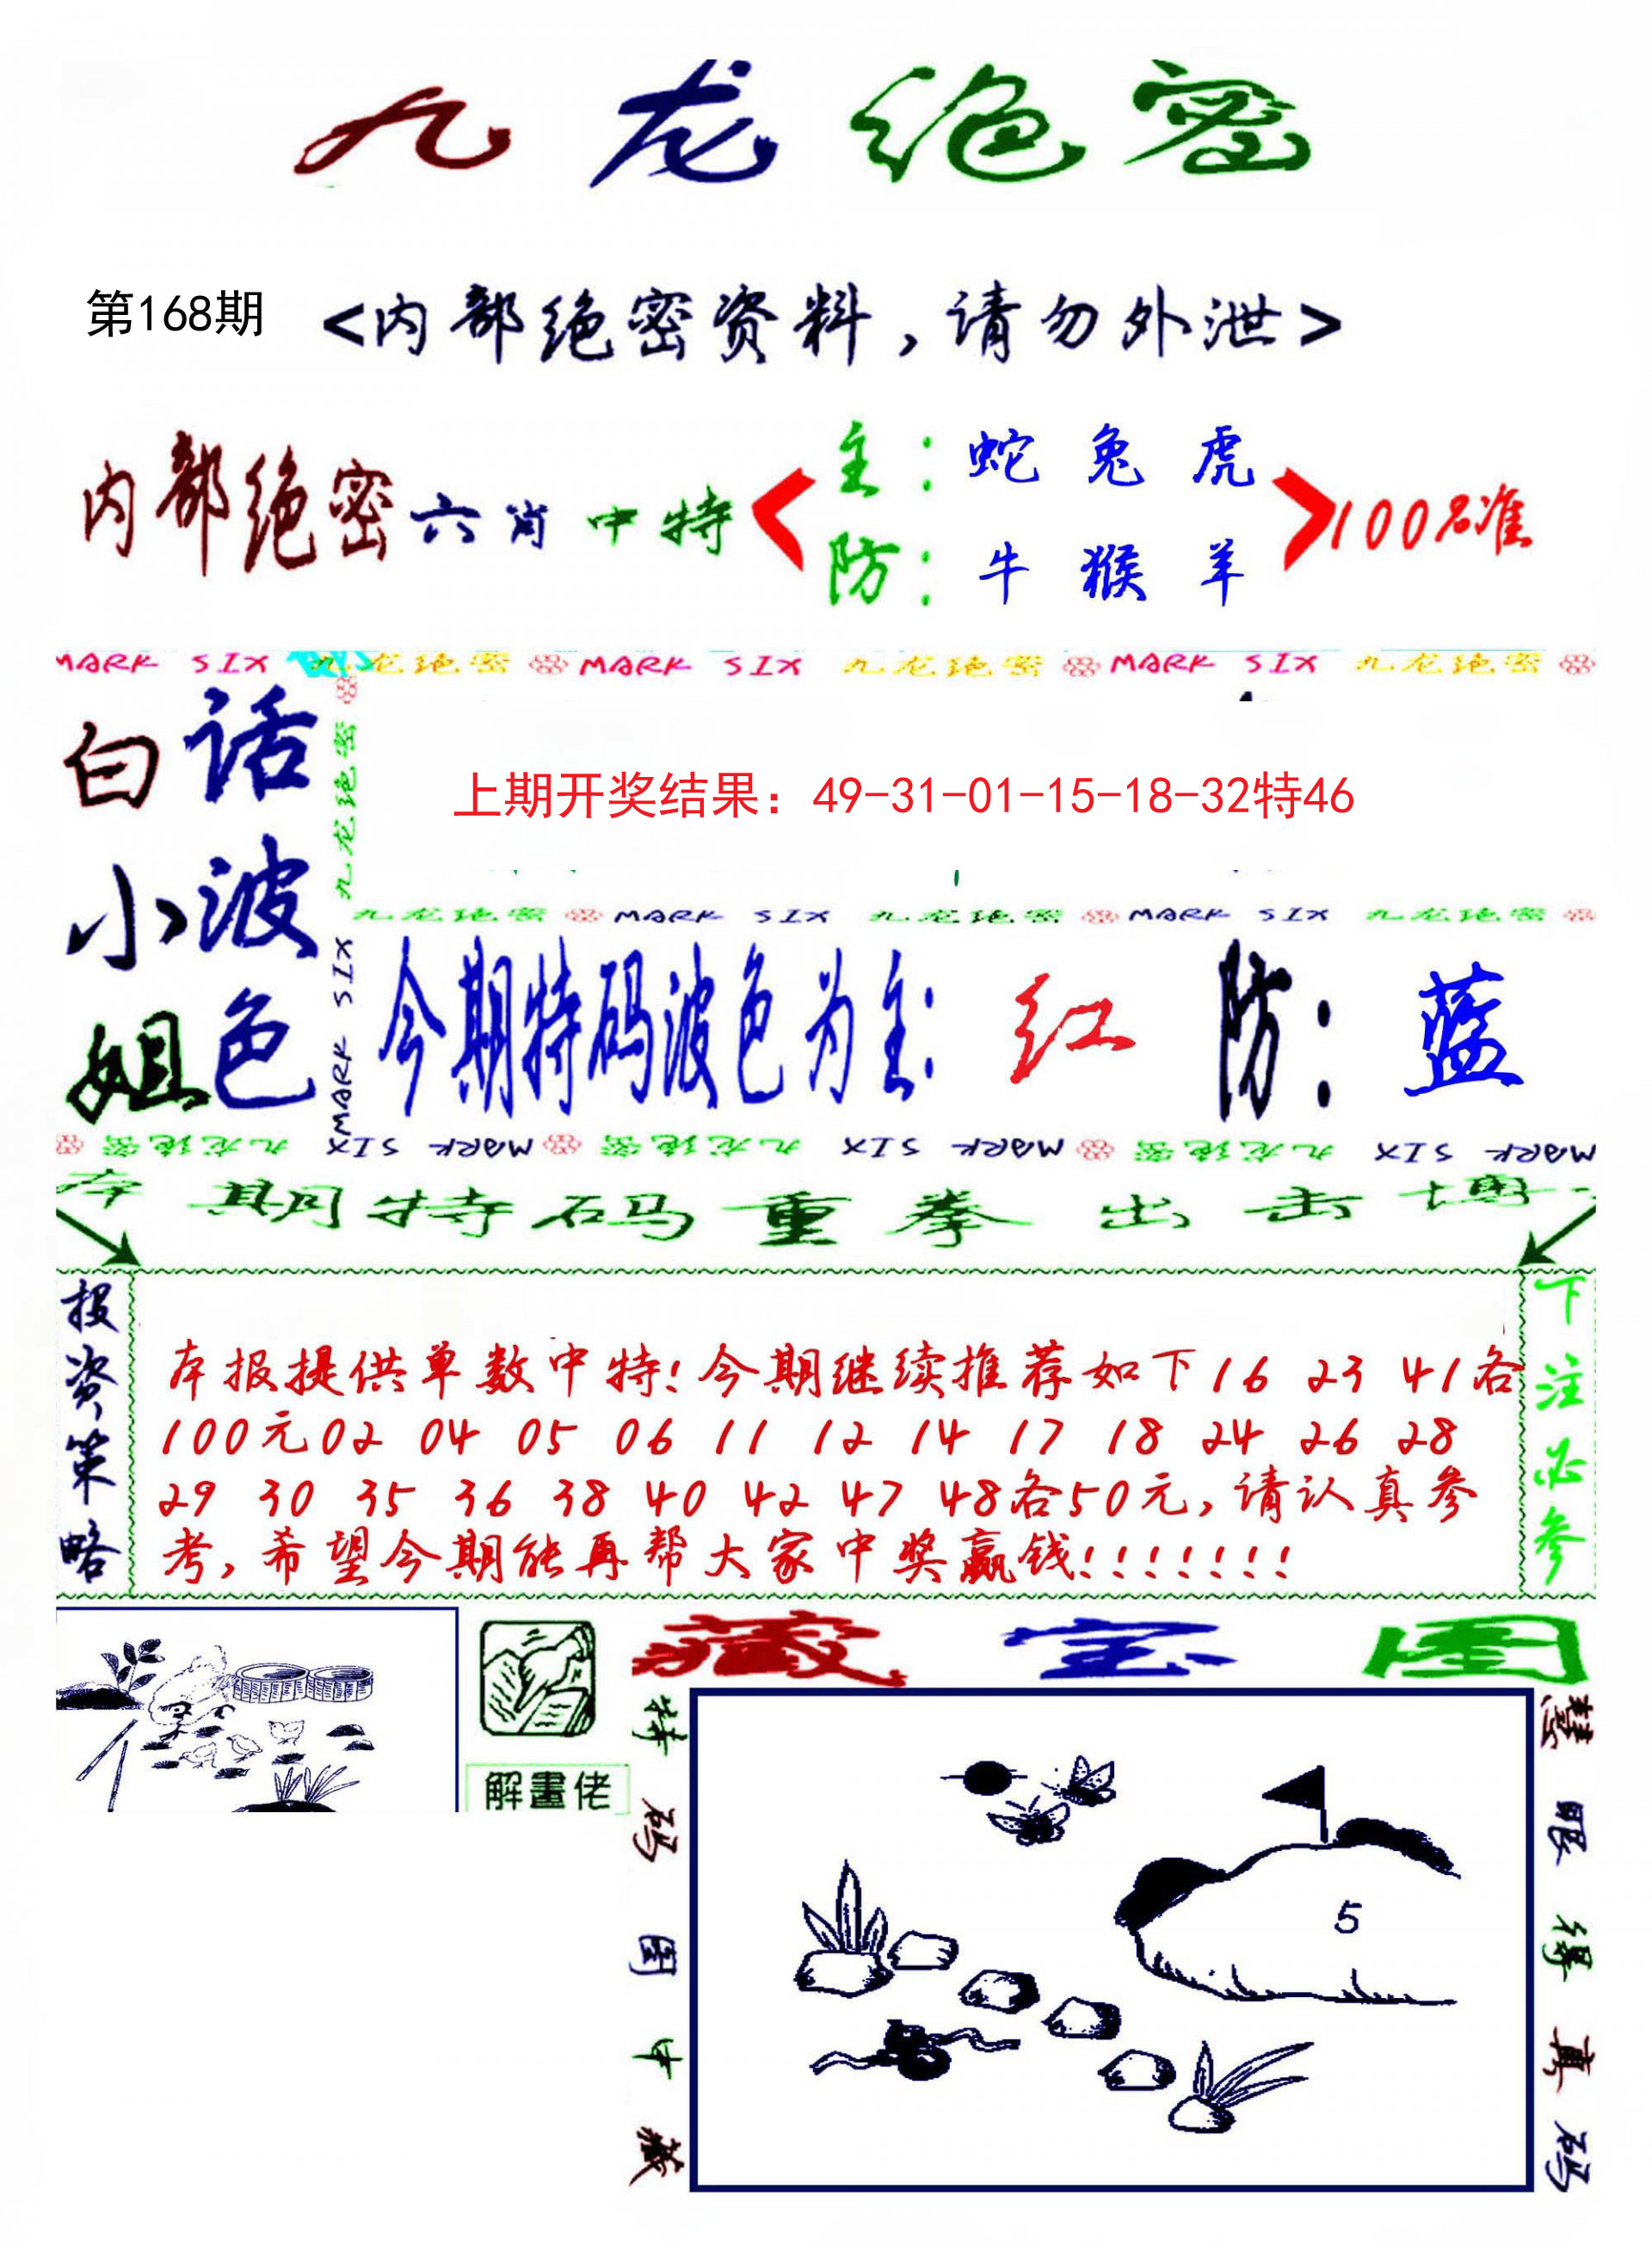 九龙绝密
第168期 <内部绝密资料，请勿外泄>
内部绝密六肖中特
主：蛇 兔 虎
防：牛 猴 羊
100%准
MARK SIX 九龙绝密 MARK SIX 九龙绝密 MARK SIX 九龙绝密
白小姐
话波色
九龙绝密
MARK SIX
上期开奖结果：49-31-01-15-18-32特46
九龙绝密 MARK SIX 九龙绝密 MARK SIX 九龙绝密
今期特码波色为主：红 防：蓝
MARK SIX 九龙绝密 MARK SIX 九龙绝密 MARK SIX 九龙绝密
本期特码重拳出击博
投资策略
本报提供单数中特!今期继续推荐如下16 23 41各
100元02 04 05 06 11 12 14 17 18 24 26 28
29 30 35 36 38 40 42 47 48各50元,请认真参
考,希望今期能再帮大家中奖赢钱!!!!!!!
下注必参
解畫佬
藏宝图
特码图中藏
5
慧眼得真码